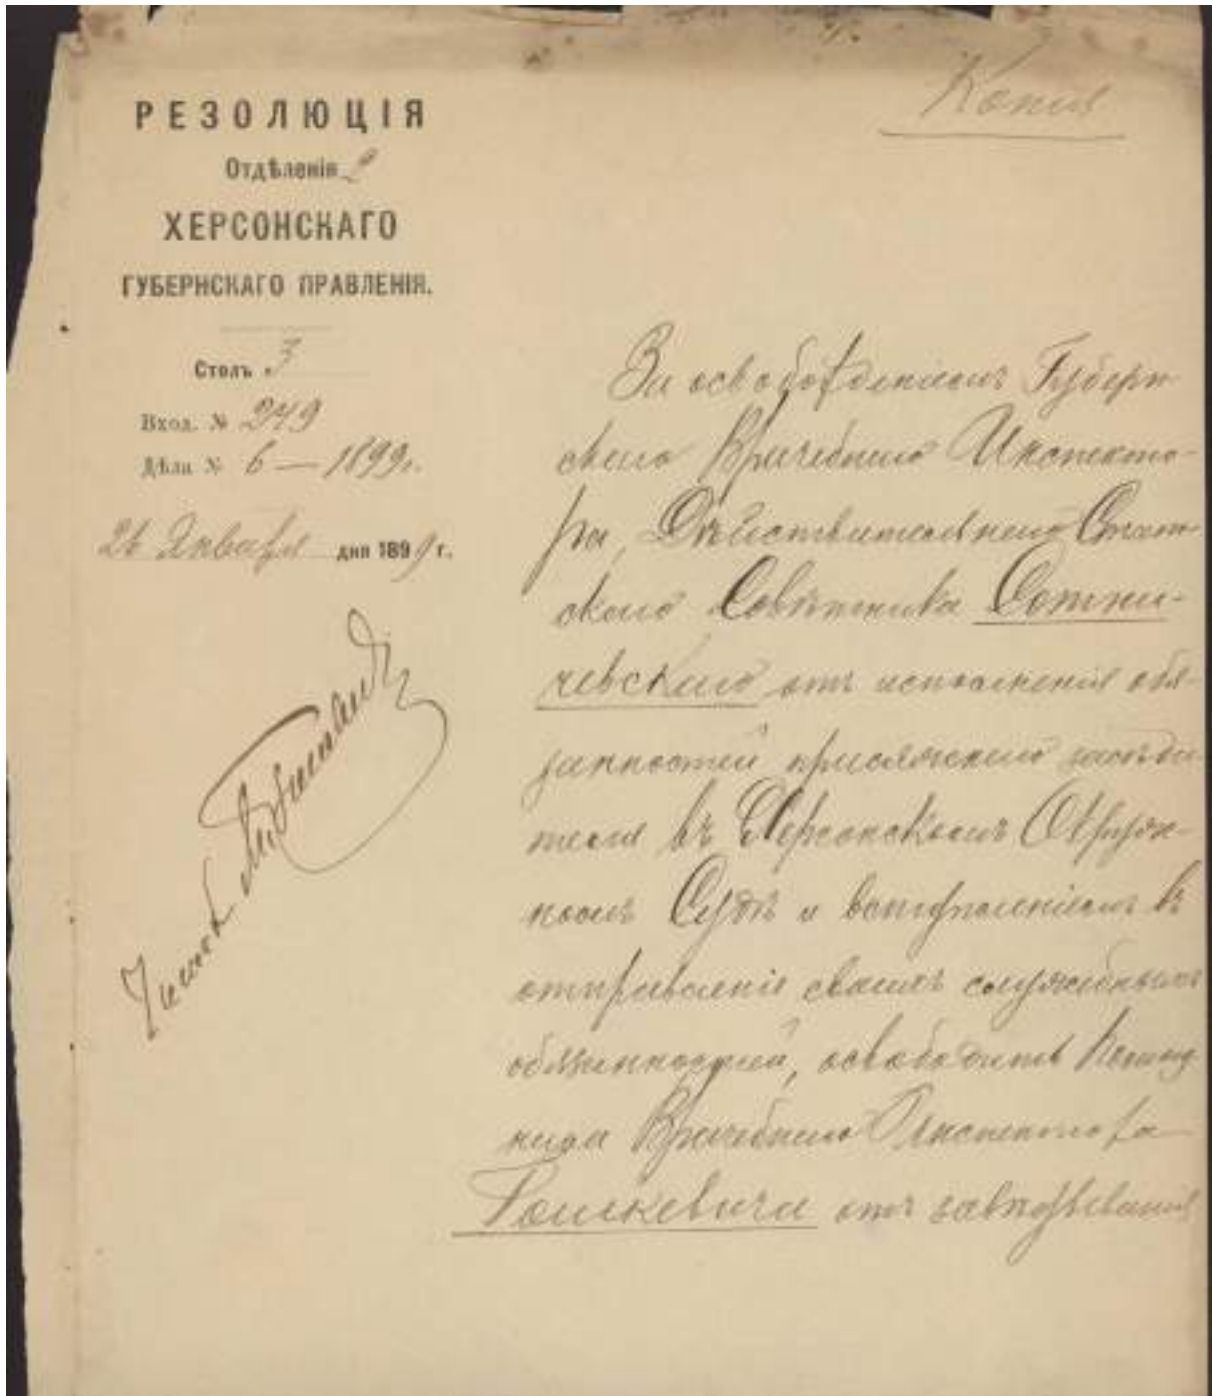 Копия
РЕЗОЛЮЦІЯ
Отдѣленія 2
ХЕРСОНСКАГО
ГУБЕРНСКАГО ПРАВЛЕНІЯ.
Столъ 3
Вход. № 249
Дѣла № 6 — 1899 г.
Января дня 1899 г.
За освобожденіемъ Губерн-
скаго Врачебнаго Инспекто-
ра, Дѣйствительнаго Стат-
скаго Совѣтника Сотни-
чевскаго отъ исполненія обя-
занностей присяжнаго засѣда-
теля въ Херсонскомъ Окруж-
номъ Судѣ и вступленіемъ въ
отправленіе своихъ служебныхъ
обязанностей, освободить Помощ
ника Врачебнаго Инспектора
отъ завѣдыванія